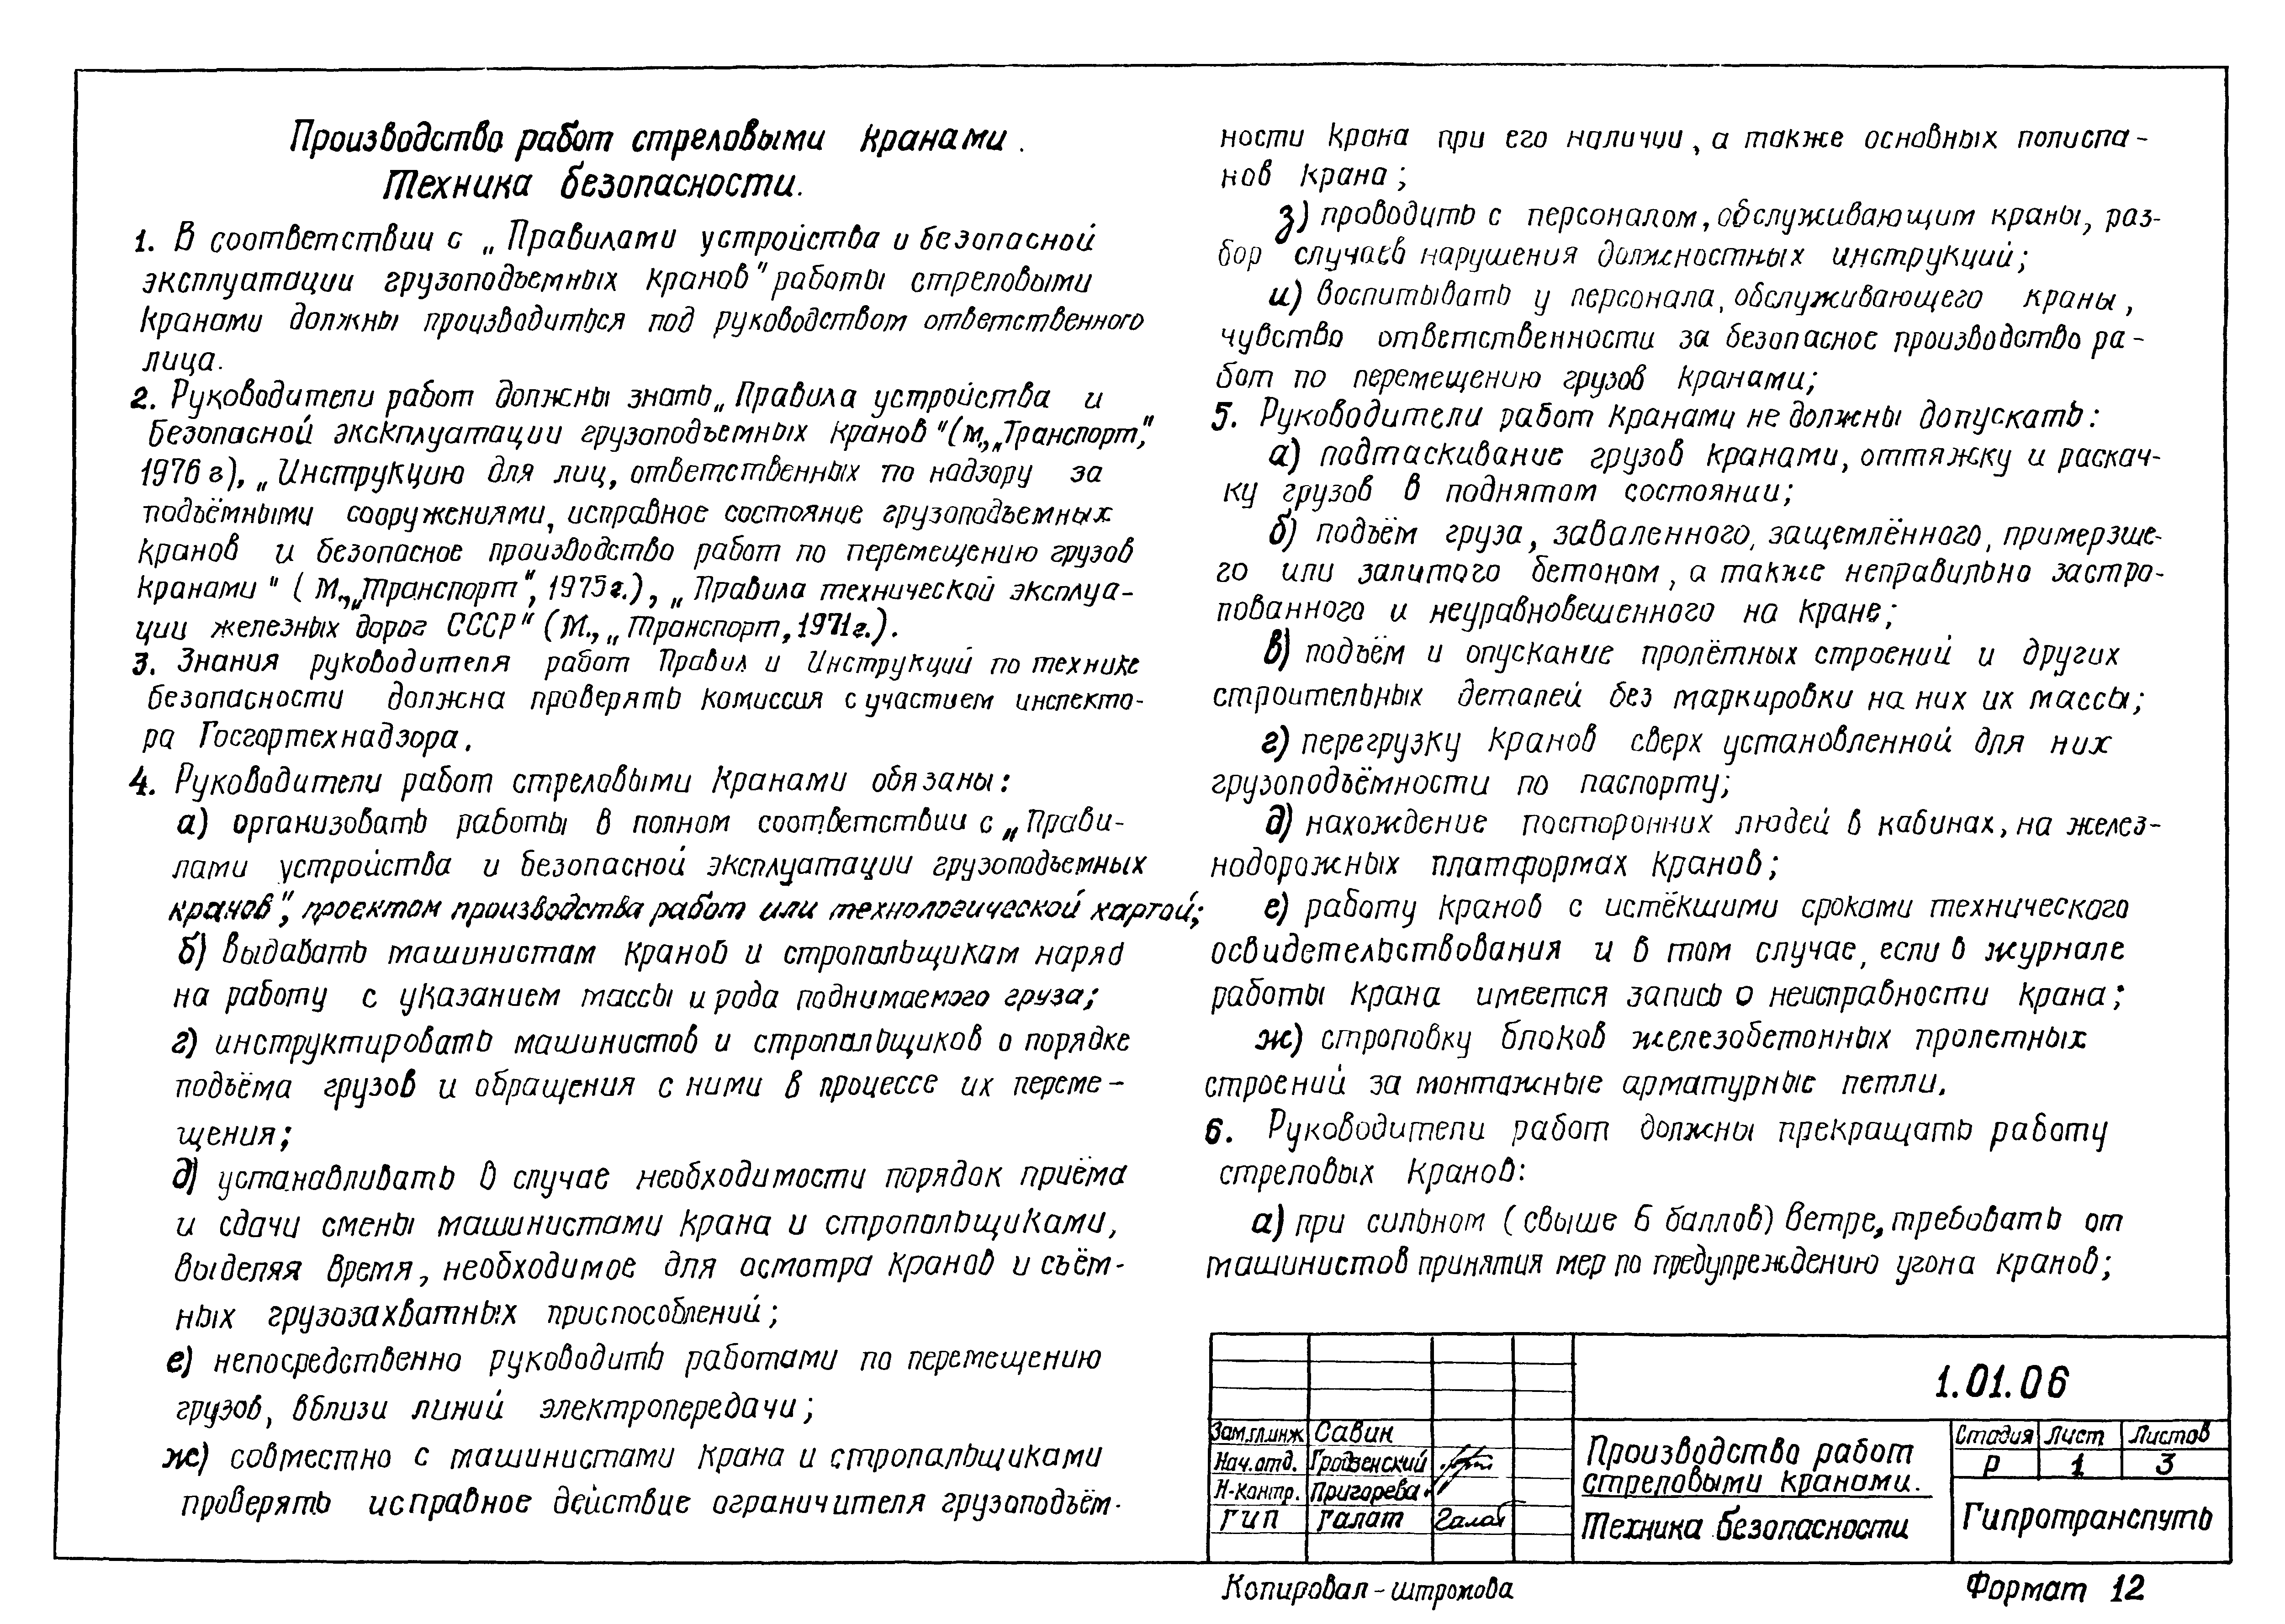 Производство работ стреловыми кранами.
Техника безопасности.
1. В соответствии с „Правилами устройства и безопасной
эксплуатации грузоподъемных кранов" работы стреловыми
кранами должны производиться под руководством ответственного
лица.
2. Руководители работ должны знать „Правила устройства и
безопасной эксклуатации грузоподъемных кранов" (М., „Транспорт",
1976 г), „Инструкцию для лиц, ответственных по надзору за
подъёмными сооружениями, исправное состояние грузоподъемных
кранов и безопасное производство работ по перемещению грузов
кранами" (М., „Транспорт", 1975 г.), „Правила технической эксплуа-
ции железных дорог СССР" (М., „Транспорт, 1971 г.).
3. Знания руководителя работ Правил и Инструкций по технике
безопасности должна проверять комиссия с участием инспекто-
ра Госгортехнадзора.
4. Руководители работ стреловыми кранами обязаны:
а) организовать работы в полном соответствии с „Прави-
лами устройства и безопасной эксплуатации грузоподъемных
кранов", проектом производства работ или технологической картой;
б) выдавать машинистам кранов и стропальщикам наряд
на работу с указанием массы и рода поднимаемого груза;
г) инструктировать машинистов и стропальщиков о порядке
подъёма грузов и обращения с ними в процессе их переме-
щения;
д) устанавливать в случае необходимости порядок приёма
и сдачи смены машинистами крана и стропальщиками,
выделяя время, необходимое для осмотра кранов и съём-
ных грузозахватных приспособлений;
е) непосредственно руководить работами по перемещению
грузов, вблизи линий электропередачи;
ж) совместно с машинистами крана и стропальщиками
проверять исправное действие ограничителя грузоподъём-
ности крана при его наличии, а также основных полиспа-
нов крана;
з) проводить с персоналом, обслуживающим краны, раз-
бор случаев нарушения должностных инструкций;
и) воспитывать у персонала, обслуживающего краны,
чувство ответственности за безопасное производство ра-
бот по перемещению грузов кранами;
5. Руководители работ кранами не должны допускать:
а) подтаскивание грузов кранами, оттяжку и раскач-
ку грузов в поднятом состоянии;
б) подъём груза, заваленного, защемлённого, примерзше-
го или залитого бетоном, а также неправильно застро-
пованного и неуравновешенного на кране;
в) подъём и опускание пролётных строений и других
строительных деталей без маркировки на них их массы;
г) перегрузку кранов сверх установленной для них
грузоподъёмности по паспорту;
д) нахождение посторонних людей в кабинах, на желез-
нодорожных платформах кранов;
е) работу кранов с истёкшими сроками технического
освидетельствования и в том случае, если в журнале
работы крана имеется запись о неисправности крана;
ж) строповку блоков железобетонных пролетных
строений за монтажные арматурные петли.
6. Руководители работ должны прекращать работу
стреловых кранов:
а) при сильном (свыше 6 баллов) ветре, требовать от
машинистов принятия мер по предупреждению угона кранов;
1.01.06
Зам.гл.инж Савин
Нач.отд. Гродзенский
Н-контр. Пригорева
ГИП Галат Галат
Производство работ
стреловыми кранами.
Техника безопасности
Стадия Лист Листов
Р 1 3
Гипротранспуть
Копировал - штромова
Формат 12